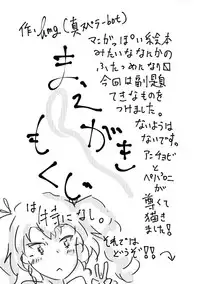 作:hmg(真スペラ-bot)
マンガっぽい絵本
みたいななんかの
ふたつめになり口
今回は副題
てきなものを
つけました。
ないようは
ないです。
アンチョビと
ペパロニが
尊くて
描き
ました!
まえがき
もくじ
は特になし。
それでは
どうぞ!!